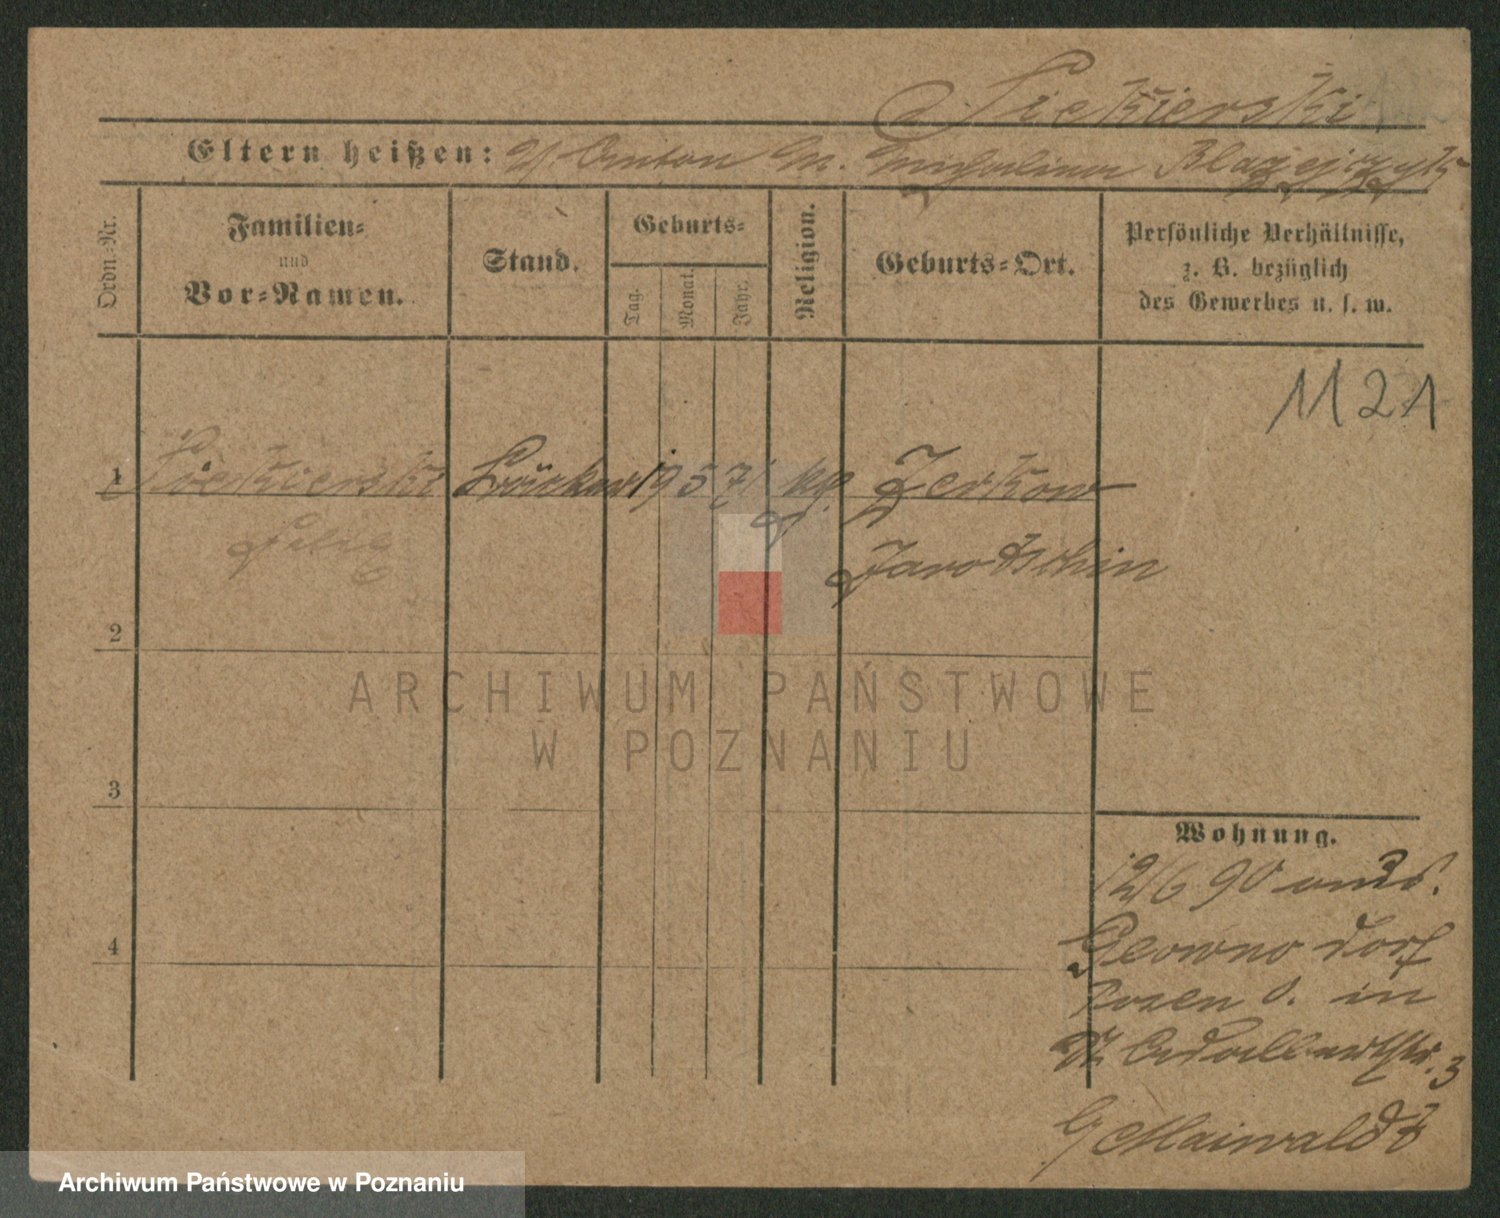 Siekierski
Eltern heißen: V. Anton M. Michalina Blazejczyk
Ordn.-Nr.
Familien-
und
Vor-Namen.
Stand.
Geburts-
Tag.
Monat.
Jahr.
Religion.
Geburts-Ort.
Persönliche Verhältnisse,
z. B. bezüglich
des Gewerbes u. s. w.
1121
1 Siekierski Bäcker 19 5 71 kg. Zerkow
Felix Jarotschin
2
ARCHIWUM PAŃSTWOWE
W POZNANIU
3
Wohnung.
12/6 90
4
dorf
Posen O. in
St. Adalbertstr. 3
Maiwald
Archiwum Państwowe w Poznaniu